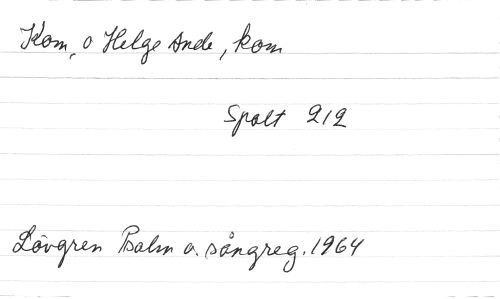 Kom, o Helge Ande, kom
Spalt 212
Lövgren Psalm o. sångreg. 1964